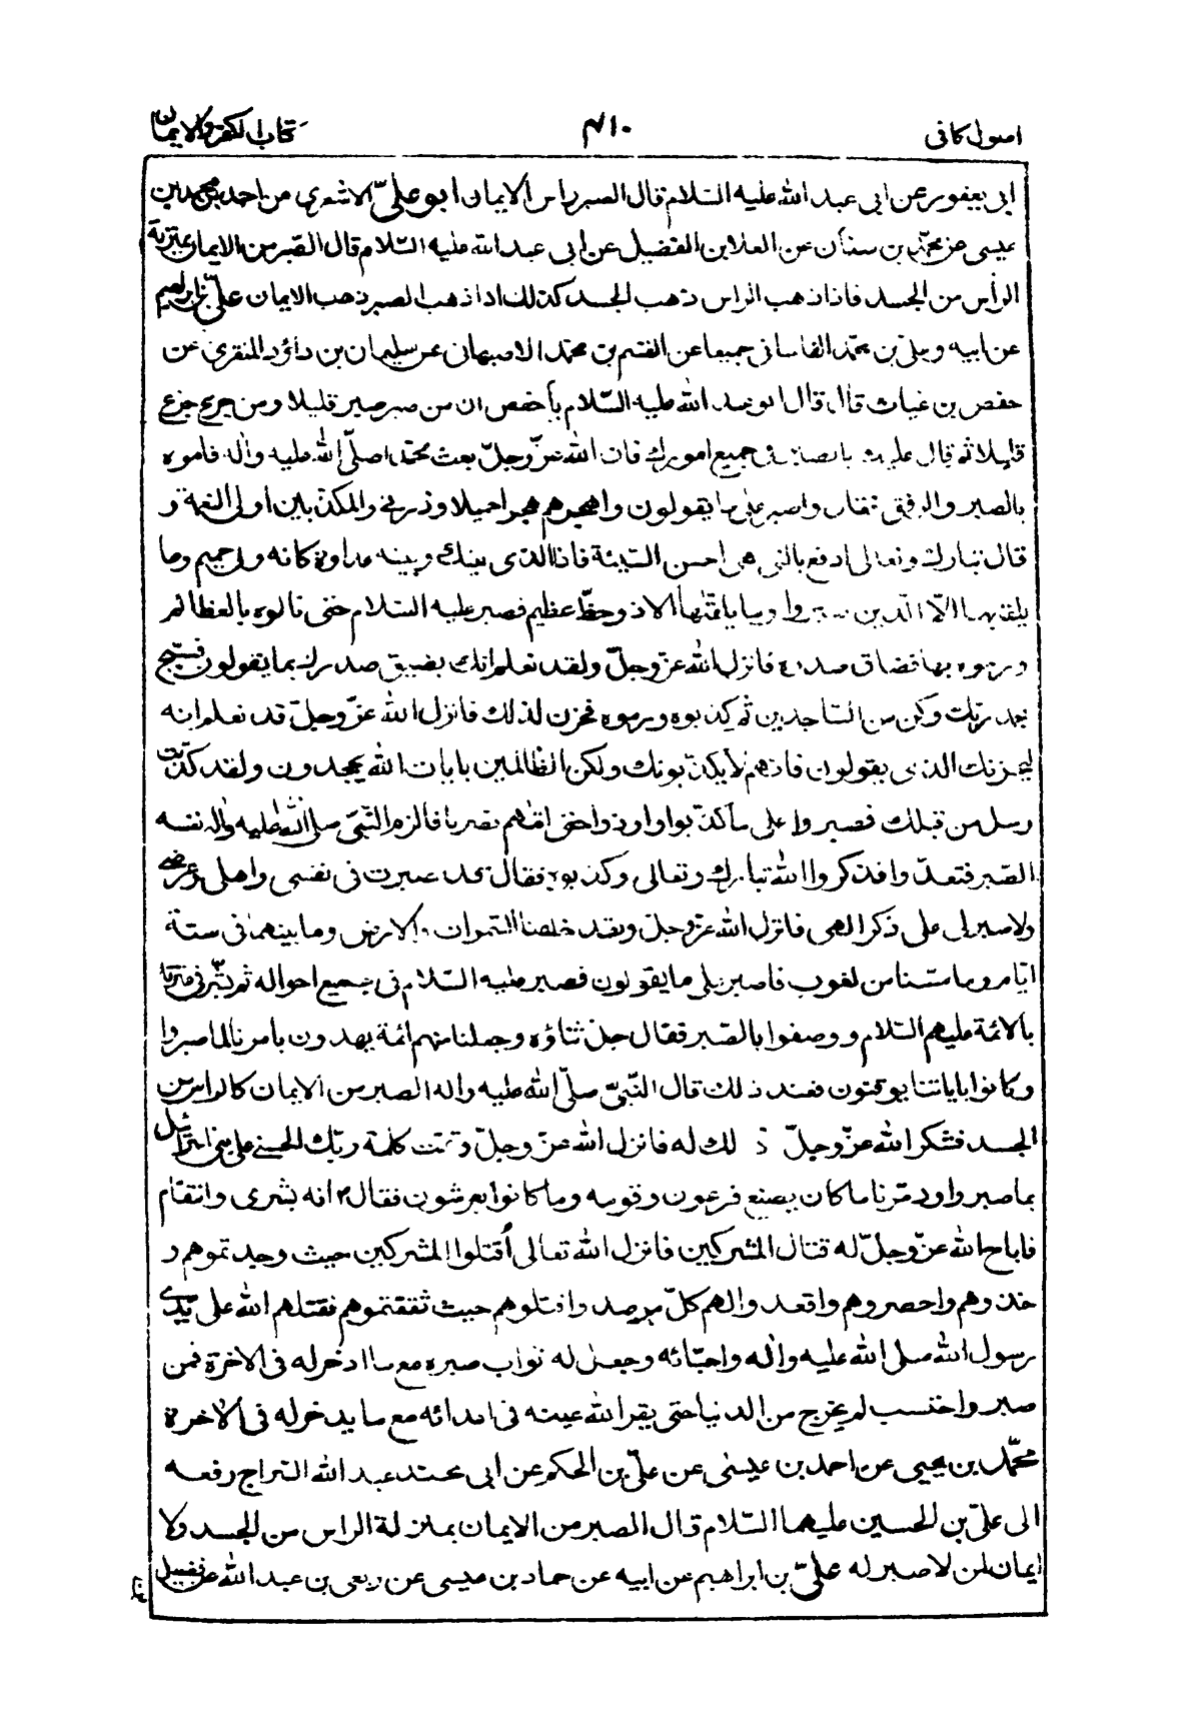 اصول كافى ۴۱۰ كتاب الكفر والايمان
ابى يعفور عن ابى عبد الله عليه السّلام قال الصبر راس الايمان ابو علىّ الاشعرى عن احمد بن محمد بن
عيسى عن محمّد بن سنان عن العلا بن الفضيل عن ابى عبد الله عليه السّلام قال الصّبر من الايمان بمنزلة
الرأس من الجسد فاذا ذهب الراس ذهب الجسد كذلك اذا ذهب الصبر ذهب الايمان علىّ بن ابرهيم
عن ابيه و علىّ بن محمّد القاسانى جميعا عن القسم بن محمّد الاصبهانى عن سليمان بن داؤد المنقرى عن
حفص بن غياث قال قال ابو عبد الله عليه السّلام يا حفص ان من صبر صبر قليلا ومن جزع جزع
قليلا ثم قال عليك بالصبر فى جميع امورك فان الله عزّ وجلّ بعث محمّدا صلّى الله عليه واله فامره
بالصبر والرفق فقال واصبر على ما يقولون واهجرهم هجرا جميلا وذرنى والمكذّبين أولى النعمة و
قال تبارك وتعالى ادفع بالتى هى احسن السّيئة فاذا الذى بينك وبينه عداوة كانه ولى حميم وما
يلقيها الّا الّذين صبروا وما يلقّيها الا ذو حظّ عظيم فصبر عليه السّلام حتى نالوه بالعظائم
ورموه بها فضاق صدره فانزل الله عزّ وجلّ ولقد نعلم انك يضيق صدرك بما يقولون فسبّح
بحمد ربّك وكن من السّاجدين ثم كذبوه ورموه فحزن لذلك فانزل الله عزّ وجلّ قد نعلم انه
ليحزنك الذى يقولون فانهم لا يكذّبونك ولكن الظّالمين بايات الله يجحدون ولقد كذّبت
رسل من قبلك فصبروا على ما كذّبوا واوذوا حتى اتٰهم نصرنا فالزم النّبىّ صلى الله عليه واله نفسه
الصّبر فتعدّوا فذكروا الله تبارك وتعالى وكذبوه فقال قد صبرت فى نفسى واهلى وعرضى
ولا صبر لى على ذكر الهى فانزل الله عزّ وجلّ ولقد خلقنا السّموات والارض وما بينهما فى ستة
ايّام وما مسّنا من لغوب فاصبر على ما يقولون فصبر عليه السّلام فى جميع احواله ثم بشّر فى عترته
بالائمة عليهم السّلام ووصفوا بالصّبر فقال جلّ ثناؤه وجعلنا منهم ائمة يهدون بامرنا لما صبروا
وكانوا باياتنا يوقنون فعند ذلك قال النّبىّ صلّى الله عليه واله الصبر من الايمان كالراس من
الجسد فشكر الله عزّ وجلّ ذلك له فانزل الله عزّ وجلّ وتمّت كلمة ربّك الحسنى على بنى اسرائيل
بما صبروا ودمّرنا ما كان يصنع فرعون وقومه وما كانوا يعرشون فقال ۴ انه بشرى وانتقام
فاباح الله عزّ وجلّ له قتال المشركين فانزل الله تعالى أقتلوا المشركين حيث وجدتموهم و
خذوهم واحصروهم واقعدوا لهم كلّ مرصد واقتلوهم حيث ثقفتموهم فقتلهم الله على يدى
رسول الله صلى الله عليه واله واحبّائه وجعل له ثواب صبره مع ما ادخر له فى الاخرة فمن
صبر واحتسب لم يخرج من الدنيا حتى يقر الله عينه فى اعدائه مع ما يدخر له فى الاخرة
محمّد بن يحيى عن احمد بن عيسى عن علىّ بن الحكم عن ابى محمّد عبد الله السّراج رفعه
الى علىّ بن الحسين عليهما السّلام قال الصبر من الايمان بمنزلة الراس من الجسد ولا
ايمان لمن لا صبر له علىّ بن ابراهيم عن ابيه عن حماد بن عيسى عن ربعى بن عبد الله عن فضيل